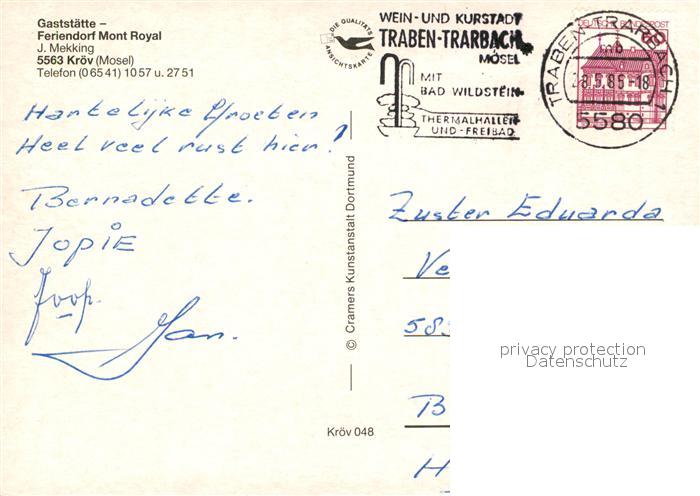 Gaststätte –
Feriendorf Mont Royal
J. Mekking
5563 Kröv (Mosel)
Telefon (0 65 41) 10 57 u. 27 51
DIE QUALITÄTS
ANSICHTSKARTE
WEIN- UND KURSTADT
TRABEN-TRARBACH
MÖSEL
MIT
BAD WILDSTEIN
THERMALHALLEN
UND-FREIBAD
TRABEN-TRARBACH 1
b
28.5.85-18
5580
DEUTSCHE BUNDESPOST
Hartelijke Groeten
Heel veel rust hier!
Bernadette.
JOPIE
Joop.
Jan.
© Cramers Kunstanstalt Dortmund
Kröv 048
Zuster Eduarda
Ve
585
B
H
privacy protection
Datenschutz